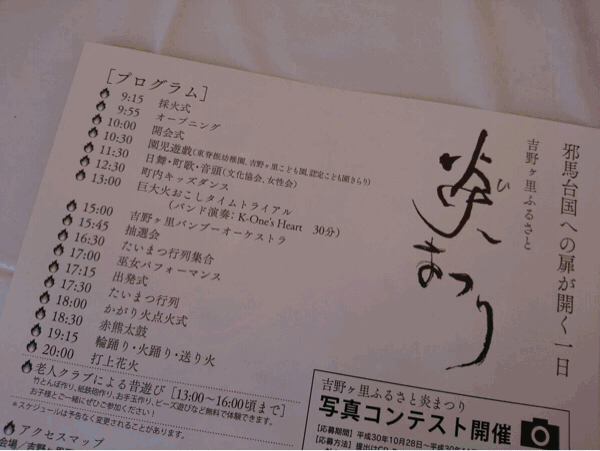 邪馬台国への扉が開く一日
吉野ヶ里ふるさと
炎まつり
ひ
[プログラム]
9:15 採火式
9:55 オープニング
10:00 開会式
10:30 園児遊戯(東脊振幼稚園、吉野ヶ里こども園、認定こども園きらり)
11:30 日舞・町歌・音頭(文化協会、女性会)
12:30 町内キッズダンス
13:00 巨大火おこしタイムトライアル
(バンド演奏; K-One's Heart 30分)
15:00 吉野ヶ里バンブーオーケストラ
15:45 抽選会
16:30 たいまつ行列集合
17:00 巫女パフォーマンス
17:15 出発式
17:30 たいまつ行列
18:00 かがり火点火式
18:30 赤熊太鼓
19:15 輪踊り・火踊り・送り火
20:00 打上花火
老人クラブによる昔遊び [13:00〜16:00頃まで]
竹とんぼ作り、紙鉄砲作り、お手玉作り、ビーズ遊びなど無料で体験できます。
お子様とご一緒にぜひご参加ください!
*スケジュールは予告なく変更されることがあります。
アクセスマップ
会場/吉野ヶ里
吉野ヶ里ふるさと炎まつり
写真コンテスト開催
[応募期間] 平成30年10月28日〜平成30年11
[応募方法]